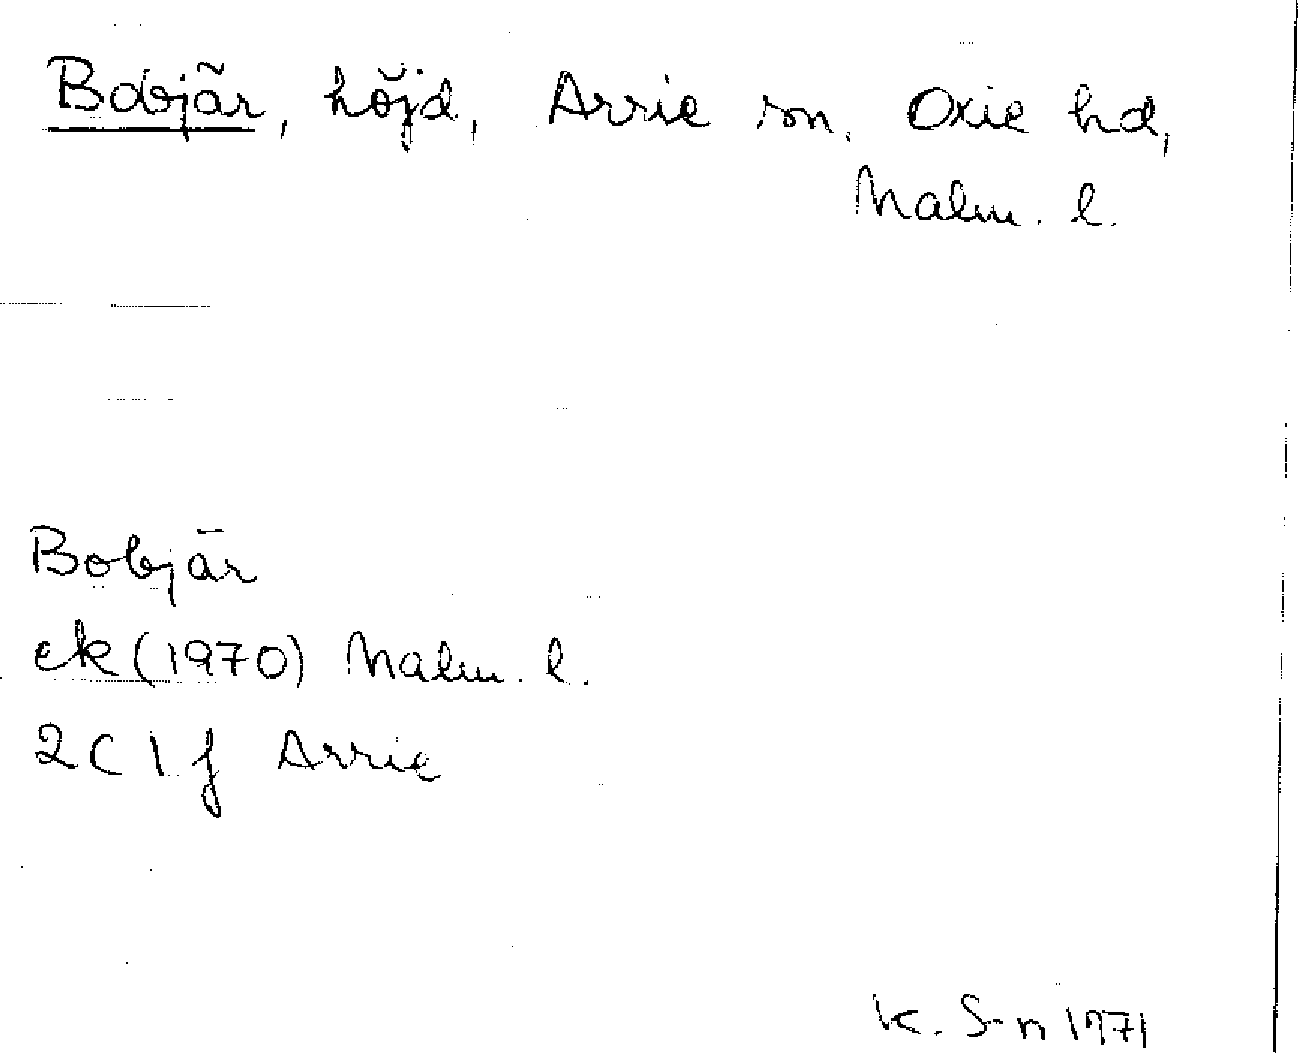 Bobjär, höjd, Arrie sn. Oxie hd,
Malm. l.
Bobjär
ek (1970) Malm. l.
2C 1 f Arrie
K. S-n 1971